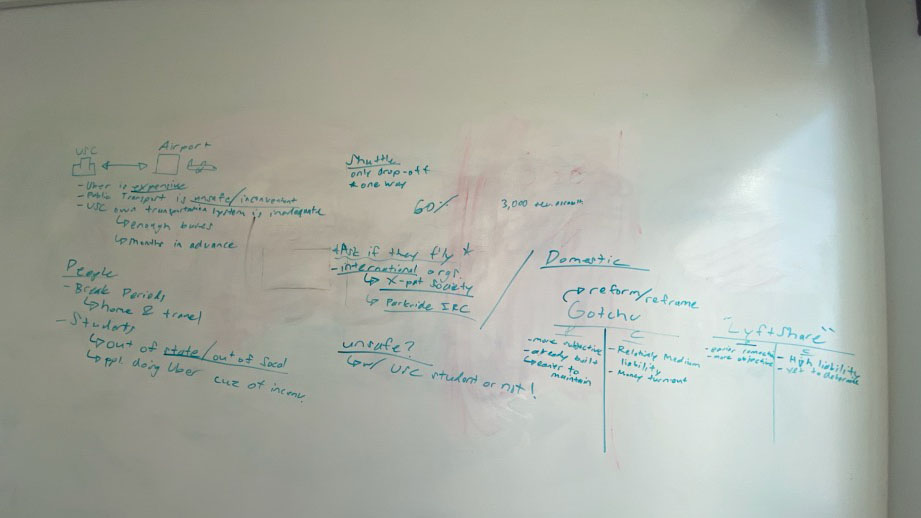 USC
Airport
- Uber is expensive
- Public Transport is unsafe/inconvenient
- USC own transportation system is inadequate
↳ enough buses
↳ months in advance
People
- Break Periods
↳ home & travel
- Students
↳ out of state/out of socal
↳ ppl doing Uber cuz of inconv.
Shuttle
only drop-off
* one way
60%
3,000
* Ask if they fly *
- international orgs.
↳ X-pat Society
↳ Parkside IRC
unsafe?
↳ w/ USC student or not!
Domestic
↱ reform/reframe
Gotchu
P
C
- more subjective
- already built
↳ easier to maintain
- Relatively Medium liability
- Money
"LyftShare"
C
- easier
- more objective
- High liability
- yet to determine